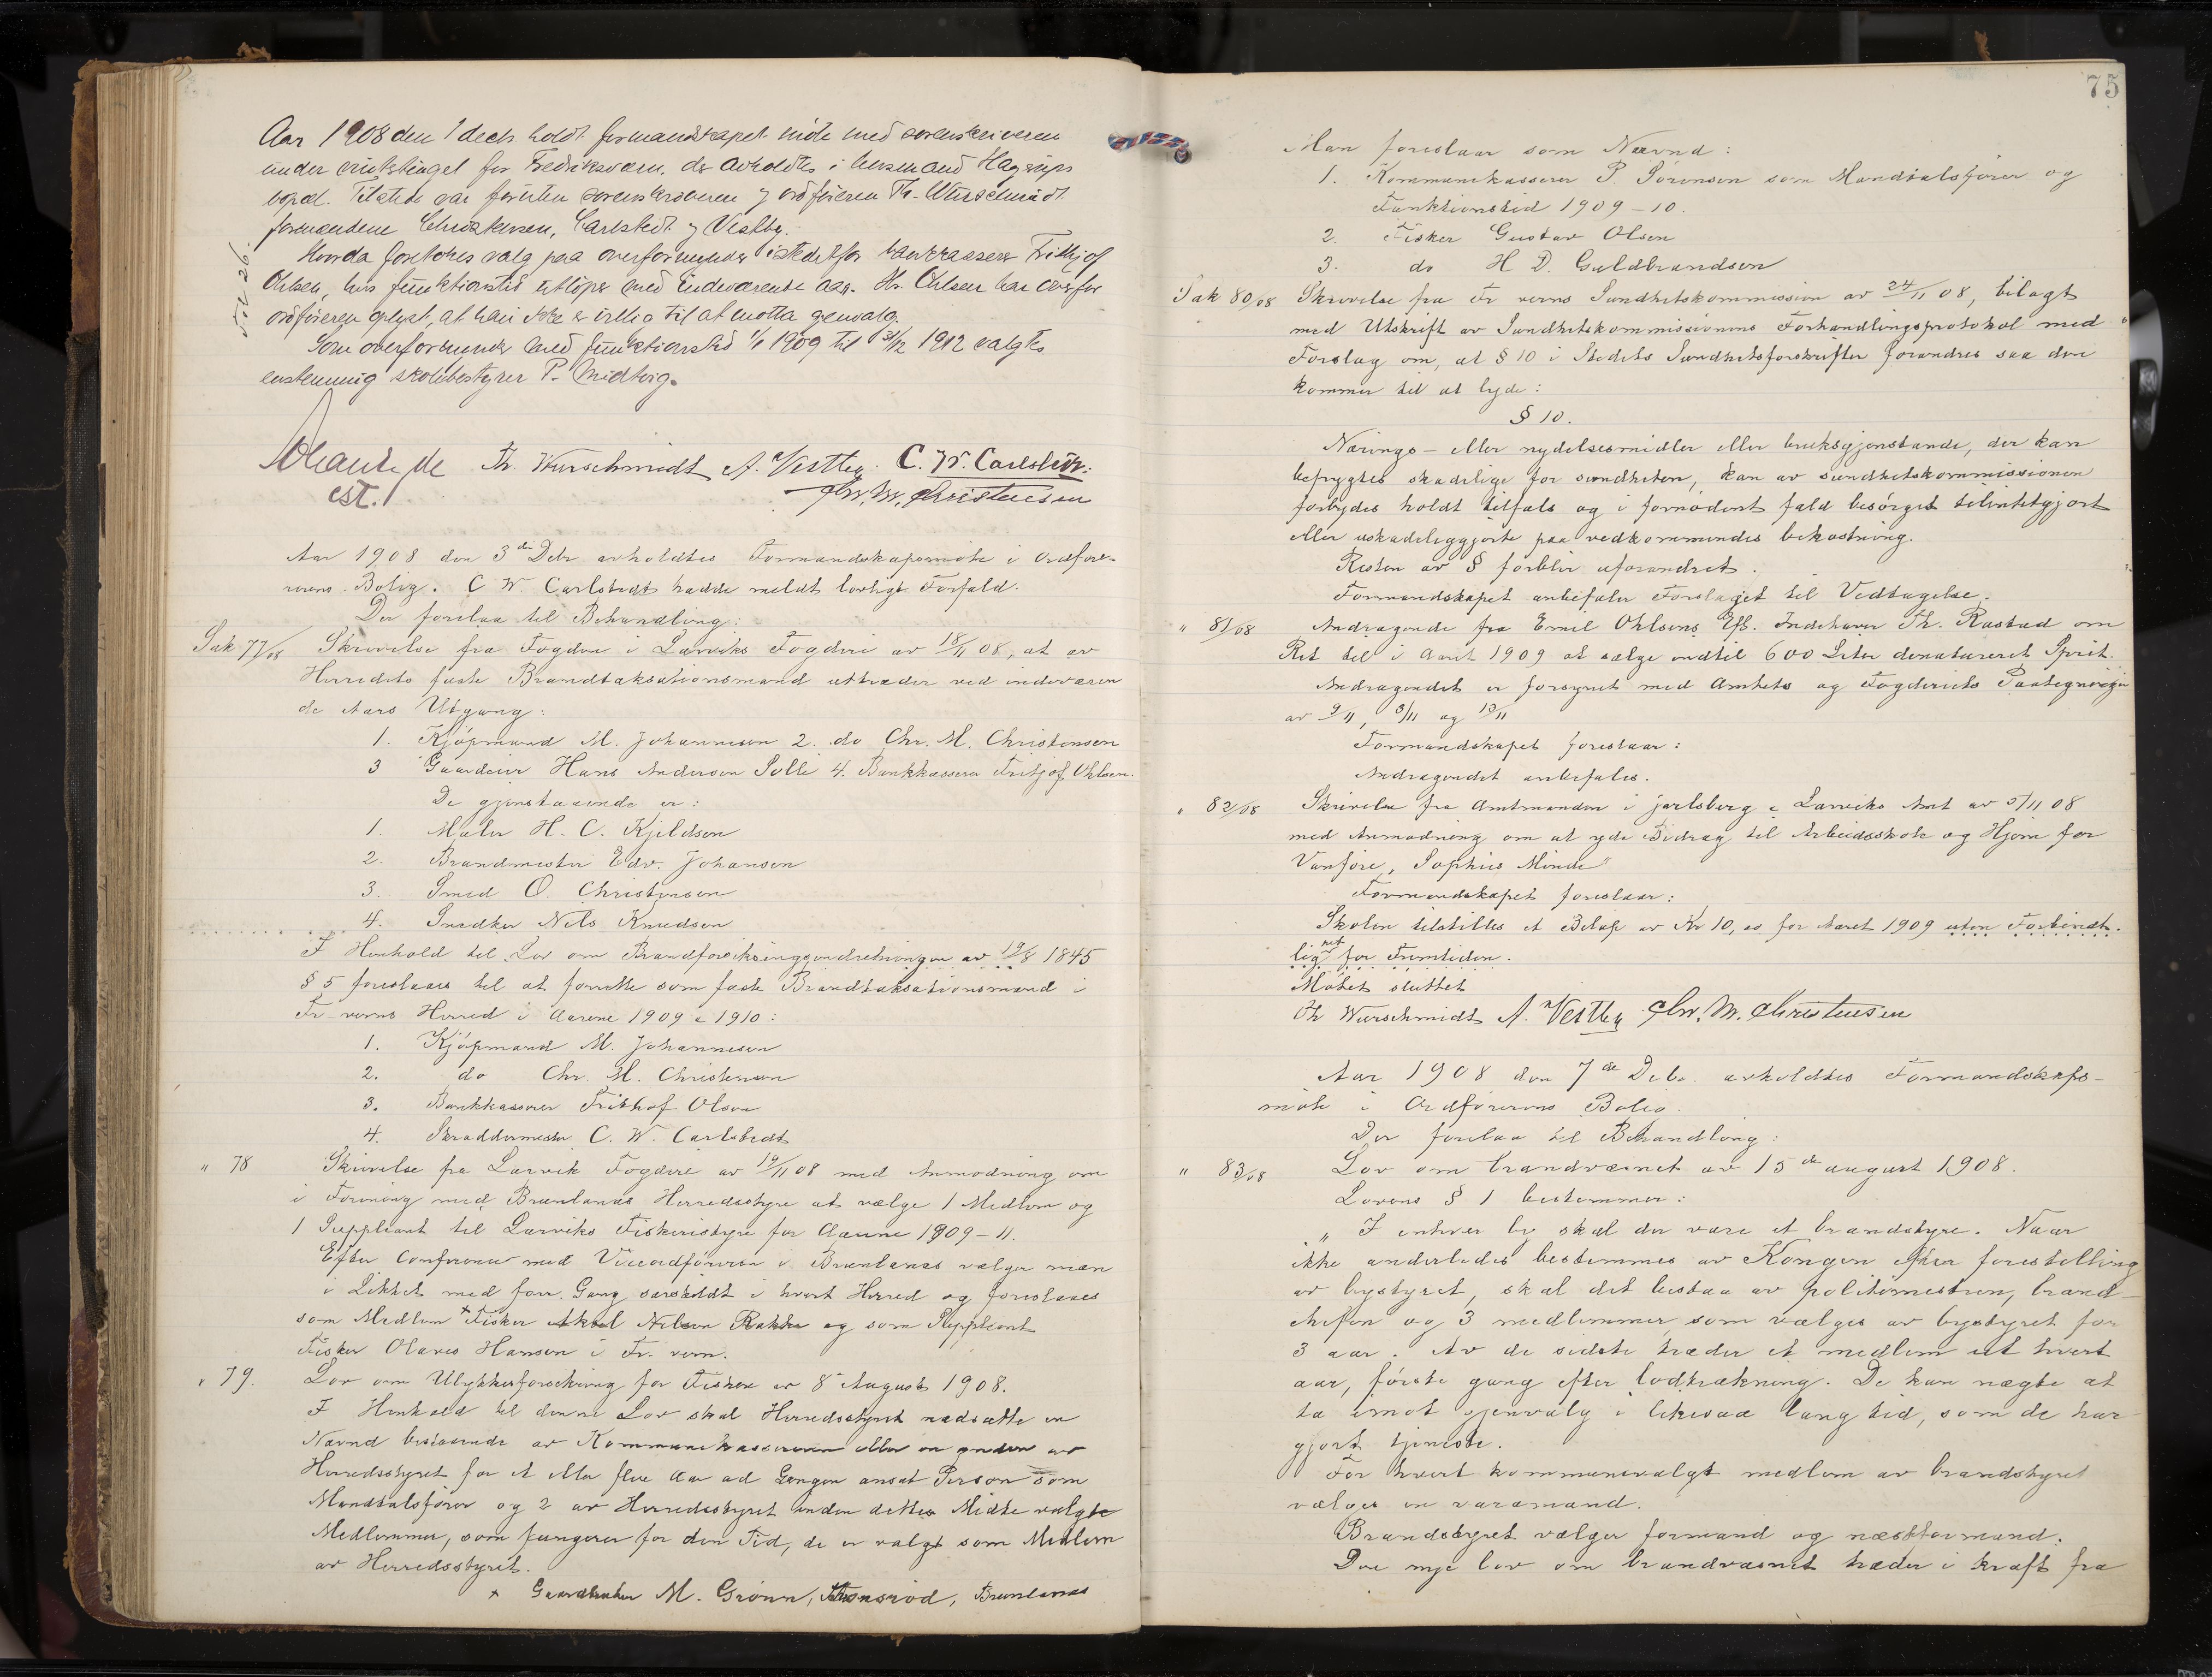 Aar 1908 den 1 decb. holdt formandskapet møte med sorenskriveren
under maanedstinget for Fredriksværn, der avholdtes i lensmand Hagerups
bopæl. Tilstede var foruten sorenskriveren og ordføreren Th. Wurschmidt
formændene Christensen, Carlstedt og Vestby.
Hvorda foretokes valg paa overformynder istedetfor bankkasserer Frithjof
Ohlsen, hvis funktionstid utløper med indeværende aar. Hr. Ohlsen har overfor
ordføreren oplyst, at han ikke er villig til at motta gjenvalg.
Som overformynder med funktionstid 1/1 1909 til 31/12 1912 valgtes
enstemmig skolebestyrer P. Midtvig.
Th. Wurschmidt A. Vestby. C. W. Carlstedt.
est. Chr. M. Christensen
Aar 1908 den 3die Decbr avholdtes Formandskapsmøte i Ordføre-
rerens Bolig. C W. Carlstedt hadde meldt lovligt Forfald.
Der forelaa til Behandling:
Sak 77/08 Skrivelse fra Fogden i Larviks Fogderi av 18/11 08, at av
Herredets faste Brandtaksationsmænd uttræder ved indeværen
de Aars Utgang:
1. Kjøpmand M. Johannesen 2. do Chr. M. Christensen
3 Gaardeier Hans Andersen Solli 4. Bankkasserer Fritjof Ohlsen.
De gjenstaaende er:
1. Maler H. C. Kjeldsen
2. Brandmester Edv. Johansen
3. Smed O. Christensen
4. Snedker Nils Knudsen
I Henhold til Lov om Brandforsikringsindretningen av 19/8 1845
§ 5 foreslaaes til at forrette som faste Brandtaksationsmænd i
Fr. verns Herred i Aarene 1909 & 1910:
1. Kjøpmand M. Johannesen
2. do Chr. M. Christensen
3. Bankkasserer Frithof Olsen
4. Skræddermester C. W. Carlstedt
" 78 Skrivelse fra Larvik Fogderi av 19/11 08 med Anmodning om
i Forening med Brunlanæs Herredsstyre at vælge 1 Medlem og
1 Suppleant til Larviks Fiskeristyre for Aarene 1909-11.
Efter Conference med Viceordføreren i Brunlanæs vælger man
i Likhet med forr. Gang særskildt i hvert Herred og foreslaaes
som Medlem x Fisker Aksel Nilsen Rakke og som Suppleant
Fisker Olaves Hansen i Fr. vern.
" 79. Lov om Ulykkesforsikring for Fiskere av 8de August 1908.
I Henhold til denne Lov skal Herredsstyret nedsætte en
Nævnd bestaaende av Kommunekassereren eller en anden av
Herredsstyret for et eller flere Aar ad Gangen ansat Person som
Mandtalsfører og 2 av Herredsstyret inden dettes Midte valgte
Medlemmer, som fungerer for den Tid, de er valgt som Medlem
av Herredsstyret.
x Gaardbruker M. Grønn, Brunlanæs
75
Man foreslaar som Nævnd:
1. Kommunekasserer P. Sörensen som Mandtalsfører og
Funktionstid 1909-10.
2. Fisker Gustav Olsen
3. do H D. Guldbrandsen
Sak 80/08 Skrivelse fra Fr verns Sundhetskommission av 24/11 08, bilagt
med Utskrift av Sundhetskommissionens Forhandlingsprotokol med
Forslag om, at § 10 i Stedets Sundhetsforskrifter forandres saa den
kommer til at lyde:
§ 10.
Nærings- eller nydelsesmidler eller bruksgjenstande, der kan
befrygtes skadelige for sundheten, kan av sundhetskommissionen
forbydes holdt tilfals og i fornødent fald besørget tilintetgjort
eller uskadeliggjorte paa vedkommendes bekostning.
Resten av § forblir uforandret.
Formandskapet anbefaler Forslaget til Vedtagelse.
" 81/08 Andragende fra Emil Ohlsens Eft. Indehaver Th. Rastad om
Ret til i Aaret 1909 at sælge indtil 600 Liter denatureret Sprit.
Andragendet er forsynet med Amtets og Fogderiets Paategninger
av 9/11, 3/11 og 13/11
Formandskapet foreslaar:
Andragendet anbefales.
" 82/08 Skrivelse fra Amtmanden i Jarlsberg & Larviks Amt av 5/11 08
med Anmodning om at yde Bidrag til Arbeidsskole og Hjem for
Vanføre, Sophies Minde
Formandskapet foreslaar:
Skolen tilstilles et Beløp av Kr 10,00 for Aaret 1909 uten Forbindt-
lighet for Fremtiden.
Møtet sluttet
Th Wurschmidt A. Vestby Chr. M. Christensen
Aar 1908 den 7de Decbr. avholdtes Formandskaps-
møte i Ordførerens Bolig.
Der forelaa til Behandling:
" 83/08 Lov om brandvæsnet av 15de august 1908.
Lovens § 1 bestemmer:
" I enhver by skal der være et brandstyre. Naar
ikke anderledes bestemmes av Kongen efter forestilling
av bystyret, skal det bestaa av politimesteren, brand-
chefen og 3 medlemmer, som vælges av bystyret for
3 aar. Av de sidste træder et medlem ut hvert
aar, første gang efter lodtrækning. De kan nægte at
ta imot gjenvalg i likesaa lang tid, som de har
gjort tjeneste.
For hvert kommunevalgt medlem av brandstyret
vælges en varamand.
Brandstyret vælger formand og næstformand.
Den nye lov om brandvæsnet træder i kraft fra